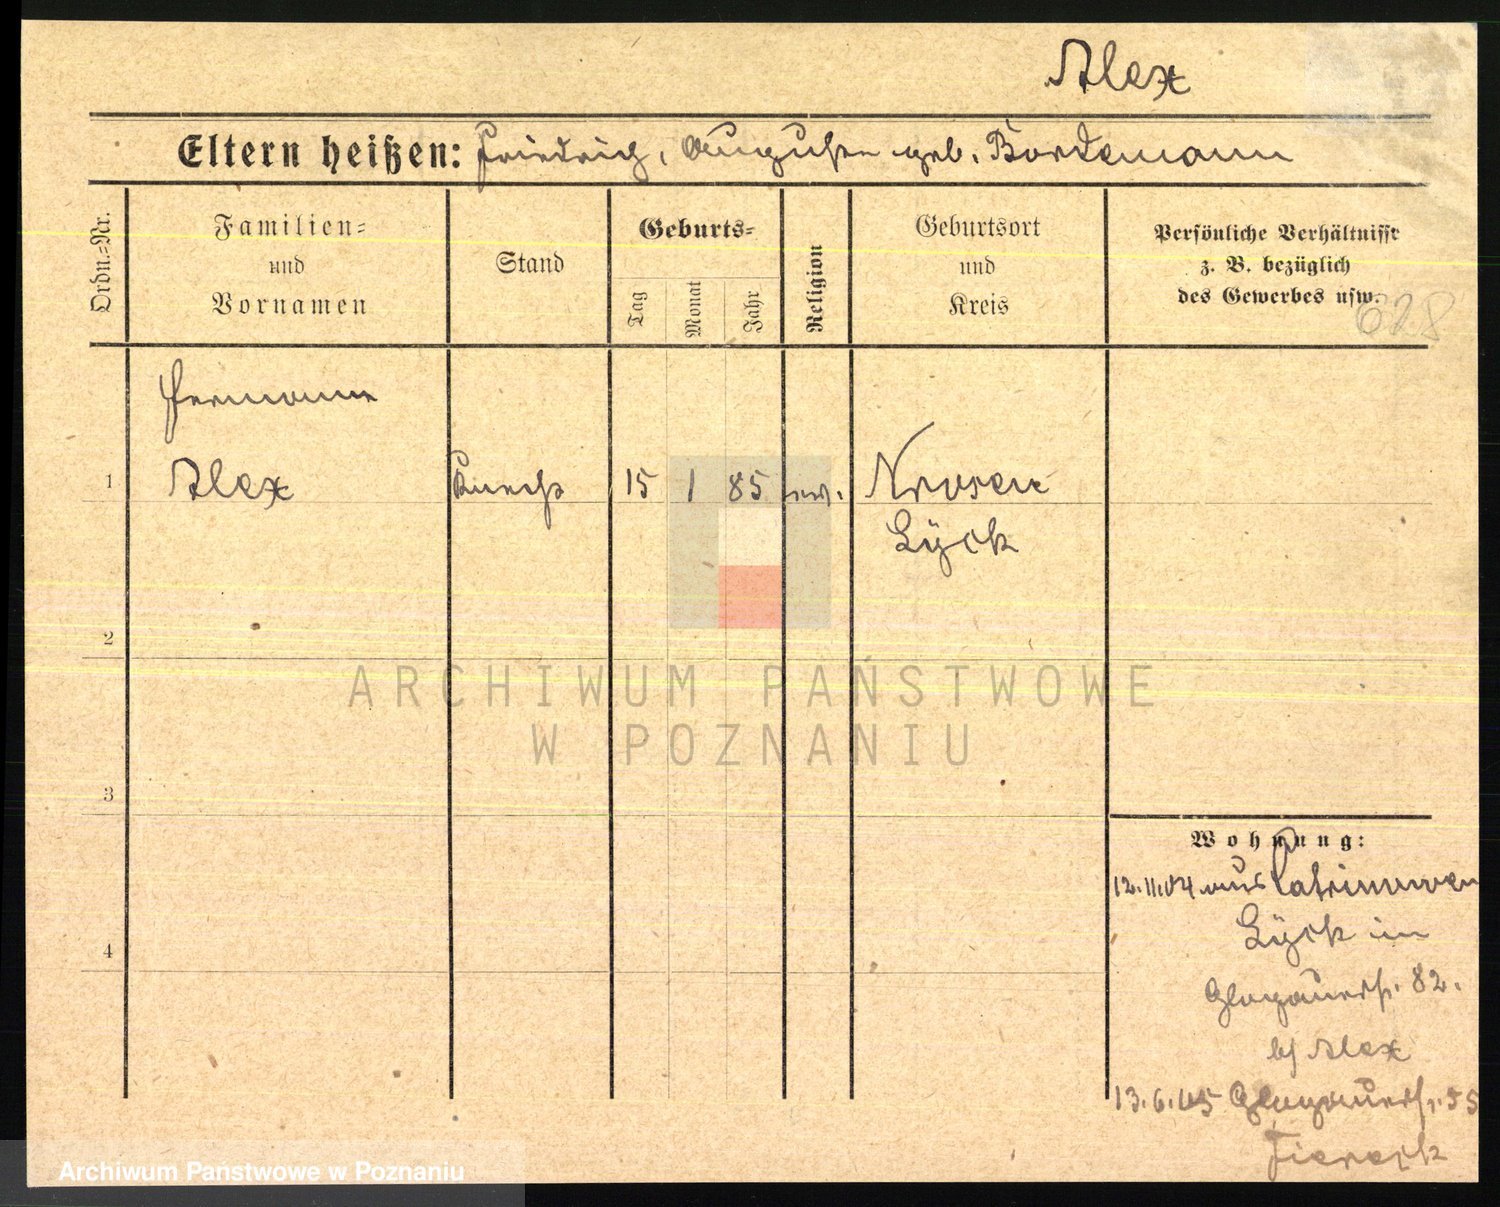 Alex
Eltern heißen: Friedrich, Auguste geb. Bordemann
Ordn.=Nr.
Familien=
und
Vornamen
Stand
Geburts=
Tag
Monat
Jahr
Religion
Geburtsort
und
Kreis
Persönliche Verhältnisse
z. B. bezüglich
des Gewerbes usw.
628
Hermann
1 Alex Knecht 15 1 85 ev. Nrosen
Lÿck
2
3
4
Wohnung:
12.11.04 aus
Lÿck in
Glogauerstr. 82.
bei Alex
13.6.05 Glogauerstr. 55
ARCHIWUM PAŃSTWOWE
W POZNANIU
Archiwum Państwowe w Poznaniu